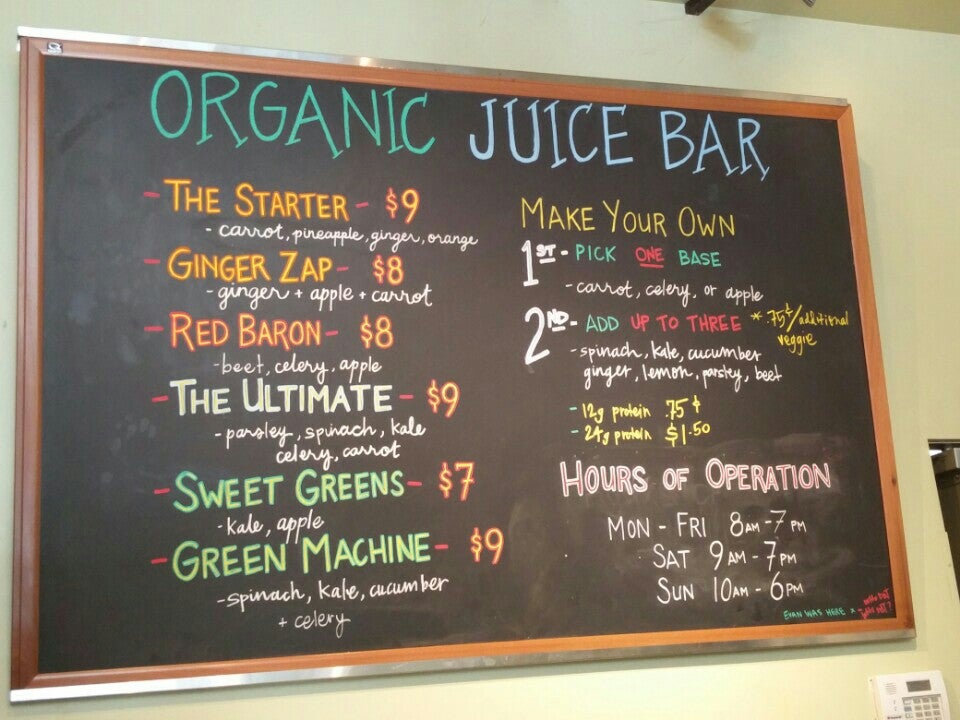 ORGANIC JUICE BAR
- THE STARTER - $9
- carrot, pineapple, ginger, orange
- GINGER ZAP - $8
- ginger + apple + carrot
- RED BARON - $8
- beet, celery, apple
- THE ULTIMATE - $9
- parsley, spinach, kale
celery, carrot
- SWEET GREENS - $7
- kale, apple
- GREEN MACHINE - $9
- spinach, kale, cucumber
+ celery
MAKE YOUR OWN
1ST - PICK ONE BASE
- carrot, celery, or apple
2ND - ADD UP TO THREE * .75¢/additional
veggie
- spinach, kale, cucumber
ginger, lemon, parsley, beet
- 12g protein .75¢
- 24g protein $1.50
HOURS OF OPERATION
MON - FRI 8AM - 7PM
SAT 9AM - 7PM
SUN 10AM - 6PM
EVAN WAS HERE